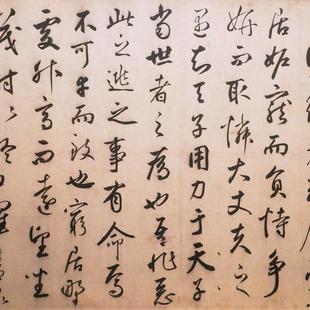 居妬寵而負恃爭
妍而取憐大丈夫之
遇知天子用力于天子
當世者之為也吾非惡
此之逃之事有命焉
不可幸而致也窮居野
處升高而遠望坐
茂樹以終日濯